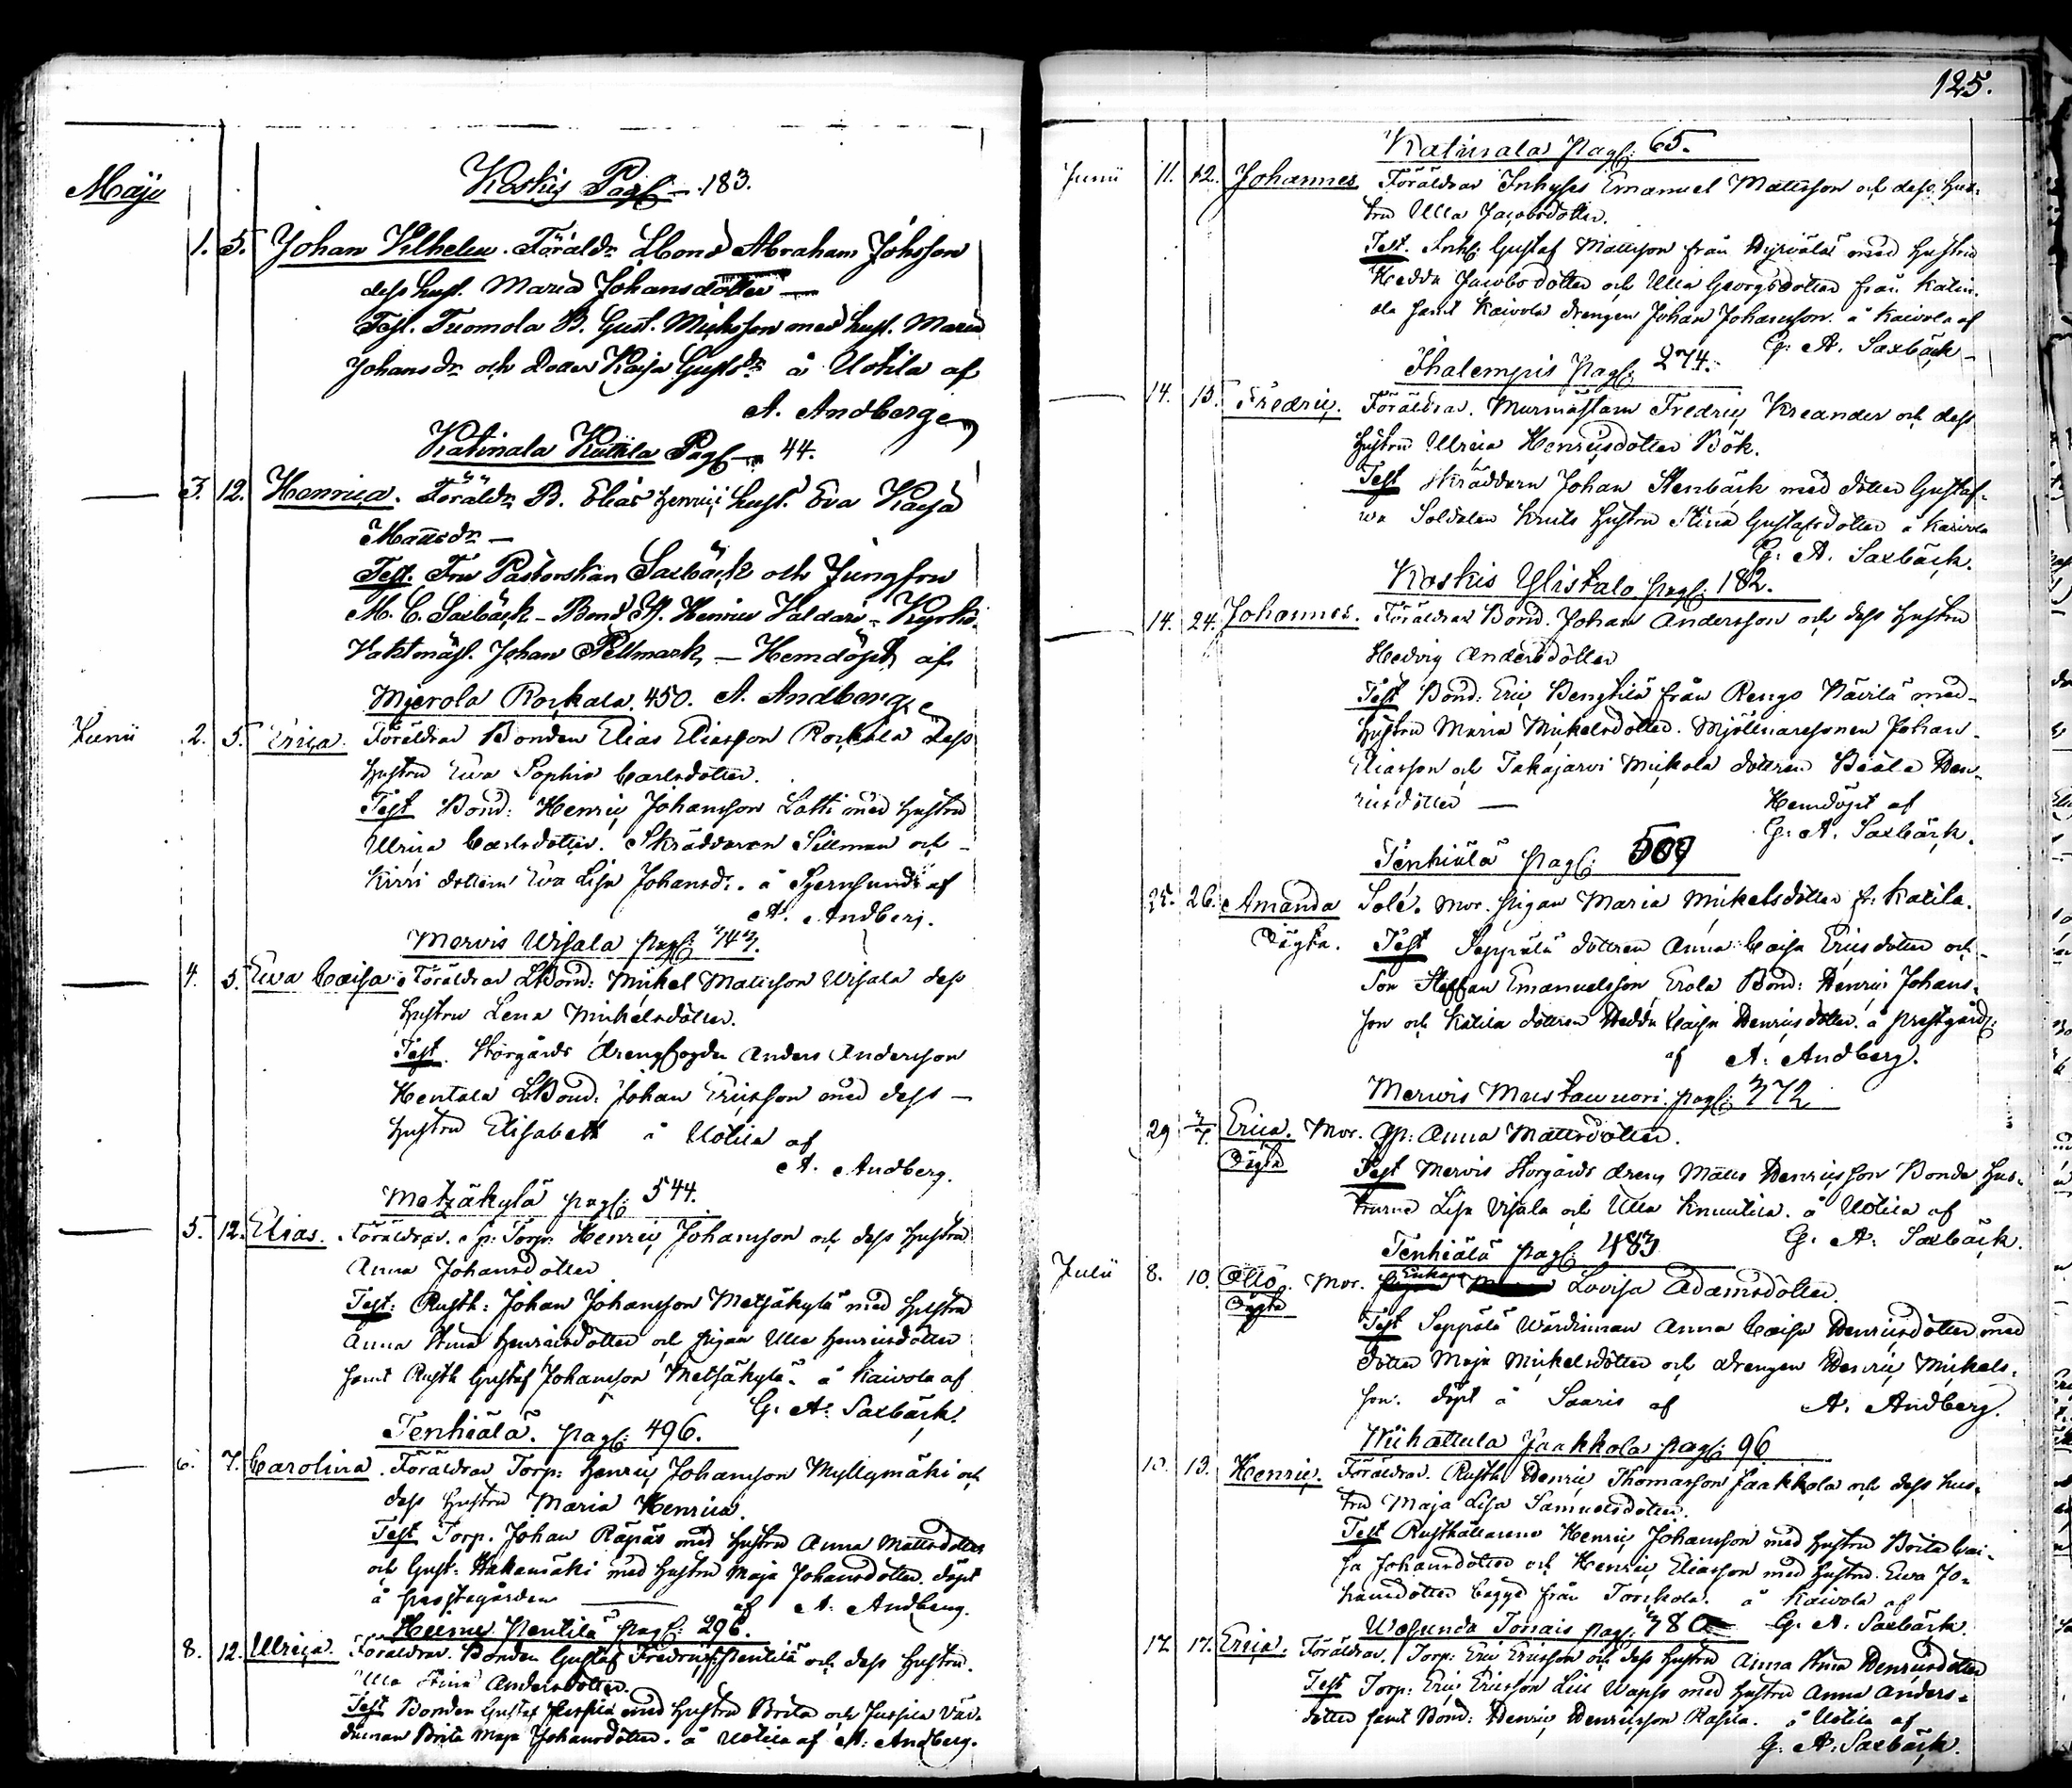 Majus
Koskis Pag: 183.
1. 5. Johan Vilhelm. Föräldr. LBond Abraham Johsson
dess hust. Maria Johansdotter
Test. Tuomola B. Gust. Michsson med hust. Maria
Johansdr och Doter Kaisa Gustdr å Uotila af
A. Andberg
Katinala Kuttila Pag: 44.
3. 12. Henrica. Föräldr B. Elias Henrici hust. Eva Kaisa
Mattsdr
Test. Fru Pastorskan Saxbäck och Jungfru
M. C. Saxbäck - Bond Henric Valdari - Kyrko
Vaktmäst. Johan Pellmark - Hemdöpt af
Mjerola Rockala. 450. A. Andberg
Junii 2. 5. Erica. Föräldrar Bonden Elias Eliasson Rockala dess
hustru Ewa Sophia Carlsdotter.
Test Bond: Henric Johansson Latti med hustru
Ulrica Carlsdotter. Skräddaren Sillman och
Kirri dottern Ewa Lisa Johansdr. å Stjernsunds af
A. Andberg.
Mervis Wisala pag: 343.
4. 5. Ewa Caisa. Föräldrar LBond: Mickel Mattsson Wisala dess
hustru Lena Mickelsdotter.
Test. Storgårds drengfogden Anders Andersson
Hentala LBond: Johan Ericsson med dess
hustru Elisabeth å Uotila af
A. Andberg.
Metzäkylä pag: 544.
5. 12. Elias. Föräldrar. Sp: Torp: Henric Johansson och dess hustru
Anna Johansdotter
Test: Rusth: Johan Johansson Metsäkylä med hustru
Anna Stina Henricsdotter och pigan Ulla Henricsdotter
samt Rusth Gustaf Johansson Metsäkylä. å Kaivola af
G. A. Saxbäck.
Tenhiälä. pag: 496.
6. 7. Carolina. Föräldrar Torp: Henric Johansson Myllymäki och
dess hustru Maria Henrica.
Test Torp. Johan Räpäs med hustru Anna Mattsdotter
och Gust: Hakamäki med hustru Maja Johansdotter. döpt
å prestegården af A. Andberg.
Heinu Pentilä pag: 296.
8. 12. Ulrica. Föräldrar. Bonden Gustaf Fredricss Pentilä och dess hustru.
Ulla Stina Andersdotter.
Test Bonden Gustaf Jussila med hustru Brita och Jussila vär-
dinnan Brita Maja Johansdotter. å Uotila af A. Andberg.
125.
Katinala pag: 65.
Junii 11. 12. Johannes Föräldrar Inhyses Emanuel Mattsson och dess hus-
tru Ulla Jacobsdotter.
Test. Inh: Gustaf Mattsson från Hyrvälä med hustru
Hedda Jacobsdotter och Ulla Georgsdotter från Katin-
ala samt Kaivola drengen Johan Johansson. å Kaivola af
G. A. Saxbäck
Ihalempis pag: 274.
14. 15. Fredric. Föräldrar. Murmästarn Fredric Kreander och dess
hustru Ulrica Henricsdotter Bök.
Test Skräddarn Johan Stenbäck med dotter Gustaf-
va Soldaten Kruts hustru Stina Gustafsdotter å Kaivola
G. A. Saxbäck.
Koskis Ylistalo pag: 182.
14. 24. Johannes. Föräldrar Bond. Johan Andersson och dess hustru
Hedvig Andersdotter
Test Bond: Eric Bengtilä från Rengo Wäcilä med
hustru Maria Mickelsdotter. Mjölnaresonen Johan
Eliasson och Takajarvi Mickola dottren Beata Hen-
ricsdotter Hemdöpt af
G. A. Saxbäck.
Tenhiälä pag: 509
25. 26. Amanda Sole. Mor. pigan Maria Mickelsdotter fr. Katila.
Oägta. Test Seppälä dottren Anna Caisa Ericsdotter och
Son Steffan Emanuelsson Erola Bond: Henric Johans-
son och Katila dottren Hedda Caisa Henricsdotter. å prestgård:
af A. Andberg.
Merwis Mustawuori pag: 372
29 3/7. Erica. Mor. Gp: Anna Mattsdotter.
Oägta Test Mervis Storgårds dreng Matts Henricsson Bonde hus-
truna Lisa Visala och Ulla Knuutila. å Uotila af
G. A. Saxbäck.
Tenhiälä pag: 483
Julii 8. 10. Otto. Mor. Enkan Lovisa Adamsdotter.
Oägta Test Seppälä Wärdinnan Anna Caisa Henricsdotter med
dotter Maja Mickelsdotter och drengen Henric Mickels-
son. döpt å Saaris af A. Andberg.
Wihattula Jaakkola pag: 96
10. 13. Henric. Föräldrar. Rusth Henric Thomasson Jaakkola och dess hus-
tru Maja Lisa Samuelsdotter.
Test Rusthållarne Henric Johansson med hustru Brita Cai-
sa Johansdotter och Henric Eliasson med hustru. Ewa Jo-
hansdotter begge från Torskola. å Kaivola af
Wohunda Tonais pag: 380 G. A. Saxbäck.
17. 17. Erica. Föräldrar, Torp: Eric Ericsson och dess hustru Anna Stina Henricsdotter
Test Torp: Eric Ericsson Lill Wapss med hustru Anna Anders-
dotter samt Bond: Henric Henricsson Rasila. å Uotila af
G. A. Saxbäck.